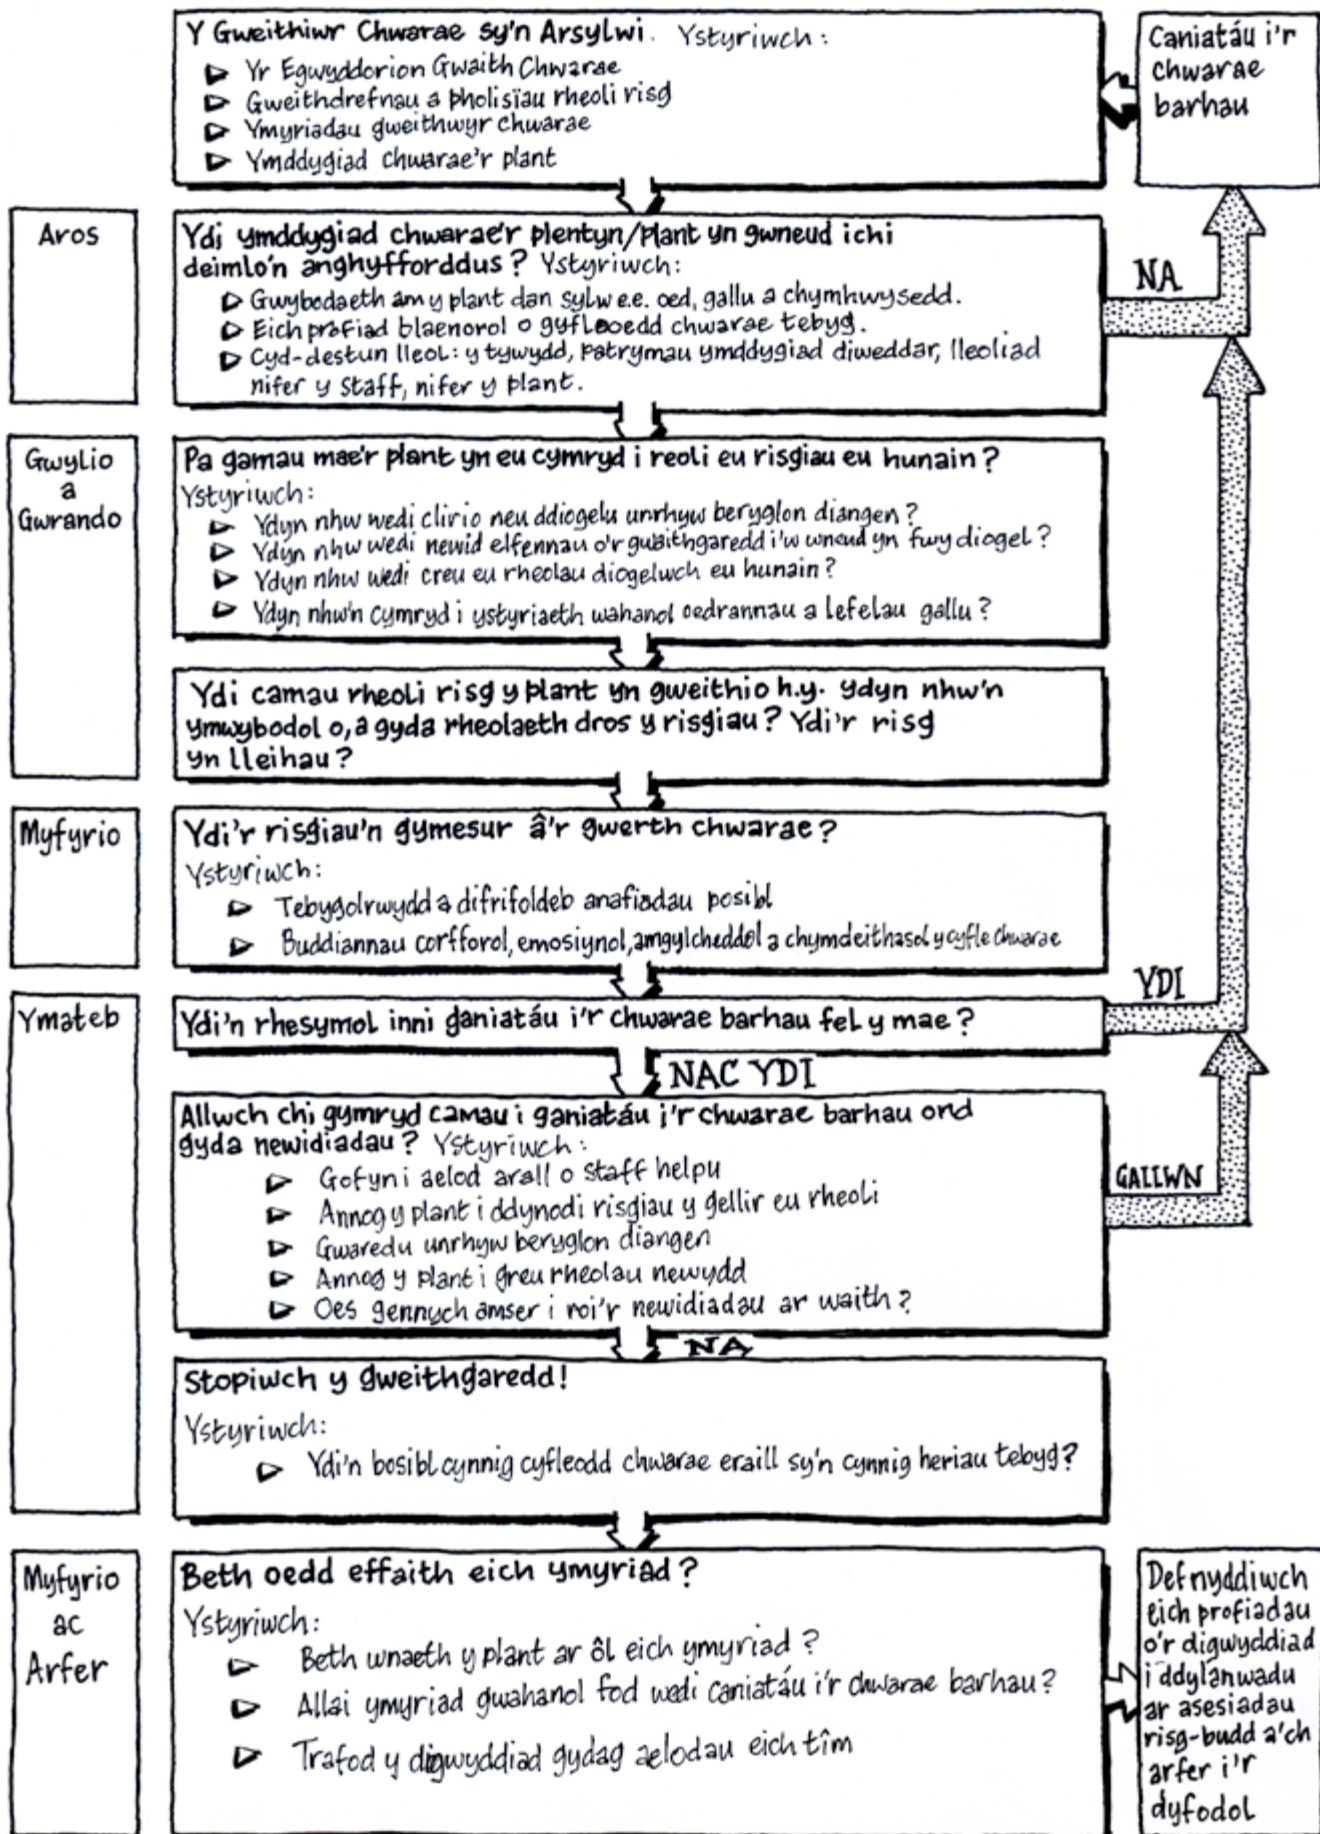 Y Gweithiwr Chwarae sy'n Arsylwi. Ystyriwch:
Yr Egwyddorion Gwaith Chwarae
Gweithdrefnau a pholisïau rheoli risg
Ymyriadau gweithwyr chwarae
Ymddygiad chwarae'r plant
Caniatáu i'r
chwarae
barhau
Aros
Ydi ymddygiad chwarae'r plentyn/plant yn gwneud ichi
deimlo'n anghyfforddus? Ystyriwch:
Gwybodaeth am y plant dan sylw e.e. oed, gallu a chymhwysedd.
Eich profiad blaenorol o gyfleoedd chwarae tebyg.
Cyd-destun lleol: y tywydd, patrymau ymddygiad diweddar, lleoliad
nifer y staff, nifer y plant.
NA
Gwylio
a
Gwrando
Pa gamau mae'r plant yn eu cymryd i reoli eu risgiau eu hunain?
Ystyriwch:
Ydyn nhw wedi clirio neu ddiogelu unrhyw beryglon diangen?
Ydyn nhw wedi newid elfennau o'r gwaithgaredd i'w wneud yn fwy diogel?
Ydyn nhw wedi creu eu rheolau diogelwch eu hunain?
Ydyn nhw'n cymryd i ystyriaeth wahanol oedrannau a lefelau gallu?
Ydi camau rheoli risg y plant yn gweithio h.y. ydyn nhw'n
ymwybodol o, a gyda rheolaeth dros y risgiau? Ydi'r risg
yn lleihau?
Myfyrio
Ydi'r risgiau'n gymesur â'r gwerth chwarae?
Ystyriwch:
Tebygolrwydd a difrifoldeb anafiadau posibl
Buddiannau corfforol, emosiynol, amgylcheddol a chymdeithasol y cyfle chwarae
Ymateb
Ydi'n rhesymol inni ganiatáu i'r chwarae barhau fel y mae?
YDI
NAC YDI
Allwch chi gymryd camau i ganiatáu i'r chwarae barhau ond
gyda newidiadau? Ystyriwch:
Gofyn i aelod arall o staff helpu
Annog y plant i ddynodi risgiau y gellir eu rheoli
Gwaredu unrhyw beryglon diangen
Annog y plant i greu rheolau newydd
Oes gennych amser i roi'r newidiadau ar waith?
GALLWN
NA
Stopiwch y gweithgaredd!
Ystyriwch:
Ydi'n bosibl cynnig cyfleodd chwarae eraill sy'n cynnig heriau tebyg?
Myfyrio
ac
Arfer
Beth oedd effaith eich ymyriad?
Ystyriwch:
Beth wnaeth y plant ar ôl eich ymyriad?
Allai ymyriad gwahanol fod wedi caniatáu i'r chwarae barhau?
Trafod y digwyddiad gydag aelodau eich tîm
Defnyddiwch
eich profiadau
o'r digwyddiad
i ddylanwadu
ar asesiadau
risg-budd a'ch
arfer i'r
dyfodol